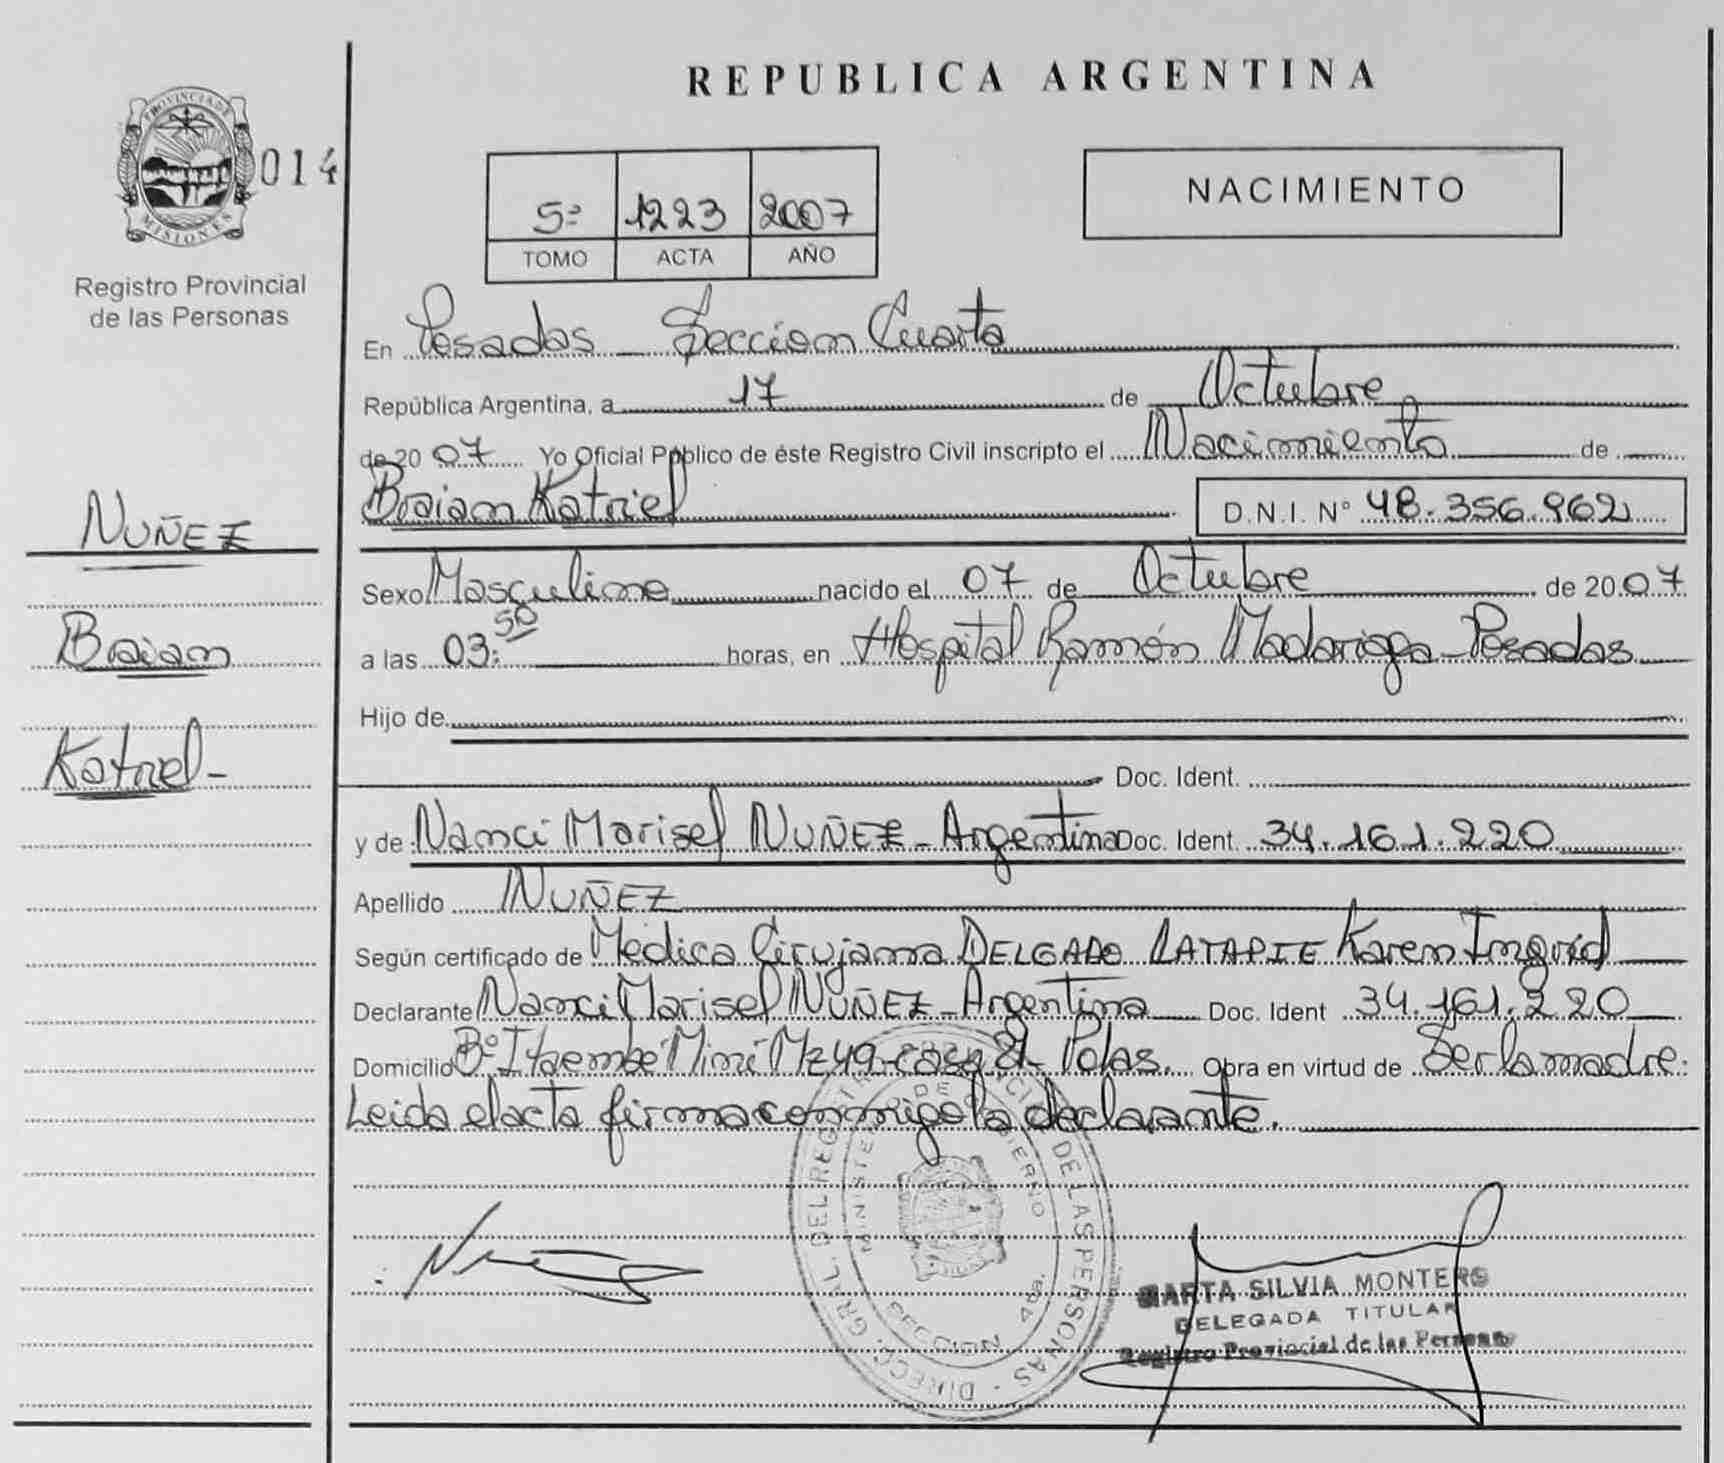 REPUBLICA ARGENTINA
PROVINCIA DE
MISIONES
014
Registro Provincial
de las Personas
5º 1223 2007
TOMO ACTA AÑO
NACIMIENTO
En Posadas - Sección Cuarta
República Argentina, a 17 de Octubre
de 2007 Yo Oficial Público de éste Registro Civil inscripto el Nacimiento de
Braian Katriel D.N.I. Nº 48.356.962
NUÑEZ
Braian
Katriel-
Sexo Masculino nacido el 07 de Octubre de 2007
a las 03:50 horas, en Hospital Ramón Madariaga - Posadas
Hijo de
Doc. Ident.
y de Nanci Marisel NUÑEZ - Argentina Doc. Ident. 34.161.220
Apellido NUÑEZ
Según certificado de Médica Cirujana DELGADO LATAPIE Karen Ingrid
Declarante Nanci Marisel NUÑEZ - Argentina Doc. Ident 34.161.220
Domicilio Bº Itaembé Miní Mz 49 - casa 21 - Pdas. Obra en virtud de Ser la madre.
Leida el acta firma conmigo la declarante.
DIREC. GRAL. DEL REGISTRO PROVINCIAL DE LAS PERSONAS
MINISTERIO DE GOBIERNO
SECCION 4ta.
MARTA SILVIA MONTERO
DELEGADA TITULAR
Registro Provincial de las Personas